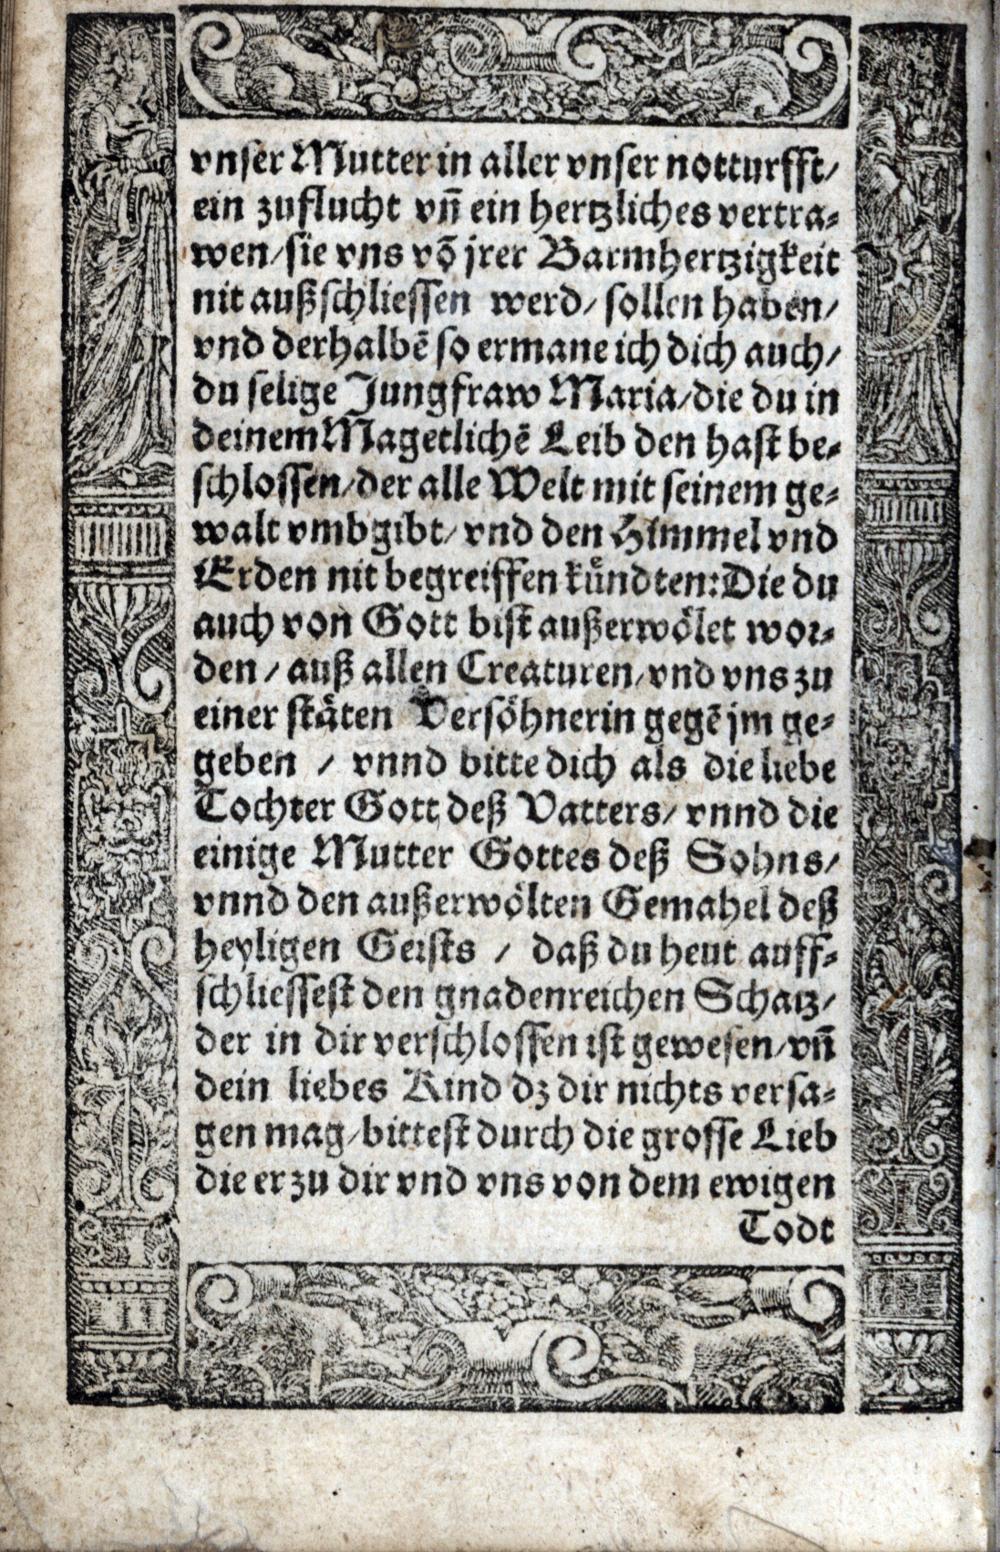 vnser Mutter in aller vnser notturfft/
ein zuflucht vñ ein hertzliches vertra⸗
wen/sie vns võ jrer Barmhertzigkeit
nit außschliessen werd/ sollen haben/
vnd derhalbẽ so ermane ich dich auch/
du selige Jungfraw Maria/die du in
deinem Magetlichẽ Leib den hast be⸗
schlossen/der alle Welt mit seinem ge⸗
walt vmbgibt/ vnd den Himmel vnd
Erden nit begreiffen kündten: Die du
auch von Gott bist außerwölet wor⸗
den / auß allen Creaturen/vnd vns zu
einer stäten Versöhnerin gegẽ jm ge⸗
geben / vnnd bitte dich als die liebe
Tochter Gott deß Vatters/ vnnd die
einige Mutter Gottes deß Sohns/
vnnd den außerwölten Gemahel deß
heyligen Geists / daß du heut auff⸗
schliessest den gnadenreichen Schatz/
der in dir verschlossen ist gewesen/vñ
dein liebes Kind dz dir nichts versa⸗
gen mag/bittest durch die grosse Lieb
die er zu dir vnd vns von dem ewigen
Todt